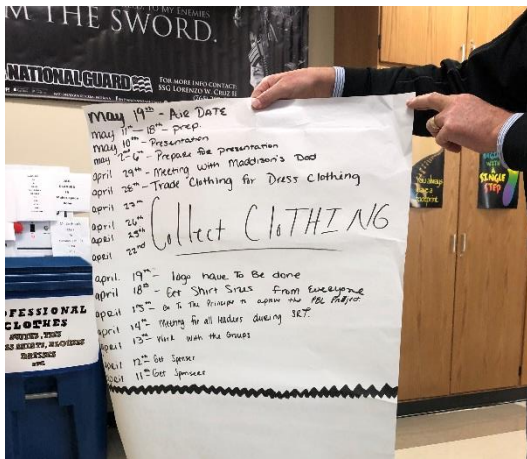 TO MY ENEMIES
M THE SWORD.
NATIONAL GUARD
FOR MORE INFO CONTACT:
SSG LORENZO W. CRUZ II
May 19th - AIR DATE
May 11th - 18th - prep.
May 10th - Presentation
May 2nd-6th - Prepare for presentation
April 29th - Meeting with Maddison's Dad
April 28th - Trade Clothing for Dress Clothing
April 27th
April 26th
April 25th
April 22nd
Collect CloTHING
April 19th - logo have To Be done
April 18th - Get Shirt Sizes from Everyone
April 15th - Go To The Principle to approve the PBL Project
April 14th - Meeting for all leaders during SRT.
April 13th - Work with the Groups
April 12th Get Sponser
April 11th Get Sponsers
OFESSIONAL
CLOTHES
SUITS, TIES
SS SHIRTS, BLOUSES
DRESSES
ETC
SINGLE
STEP